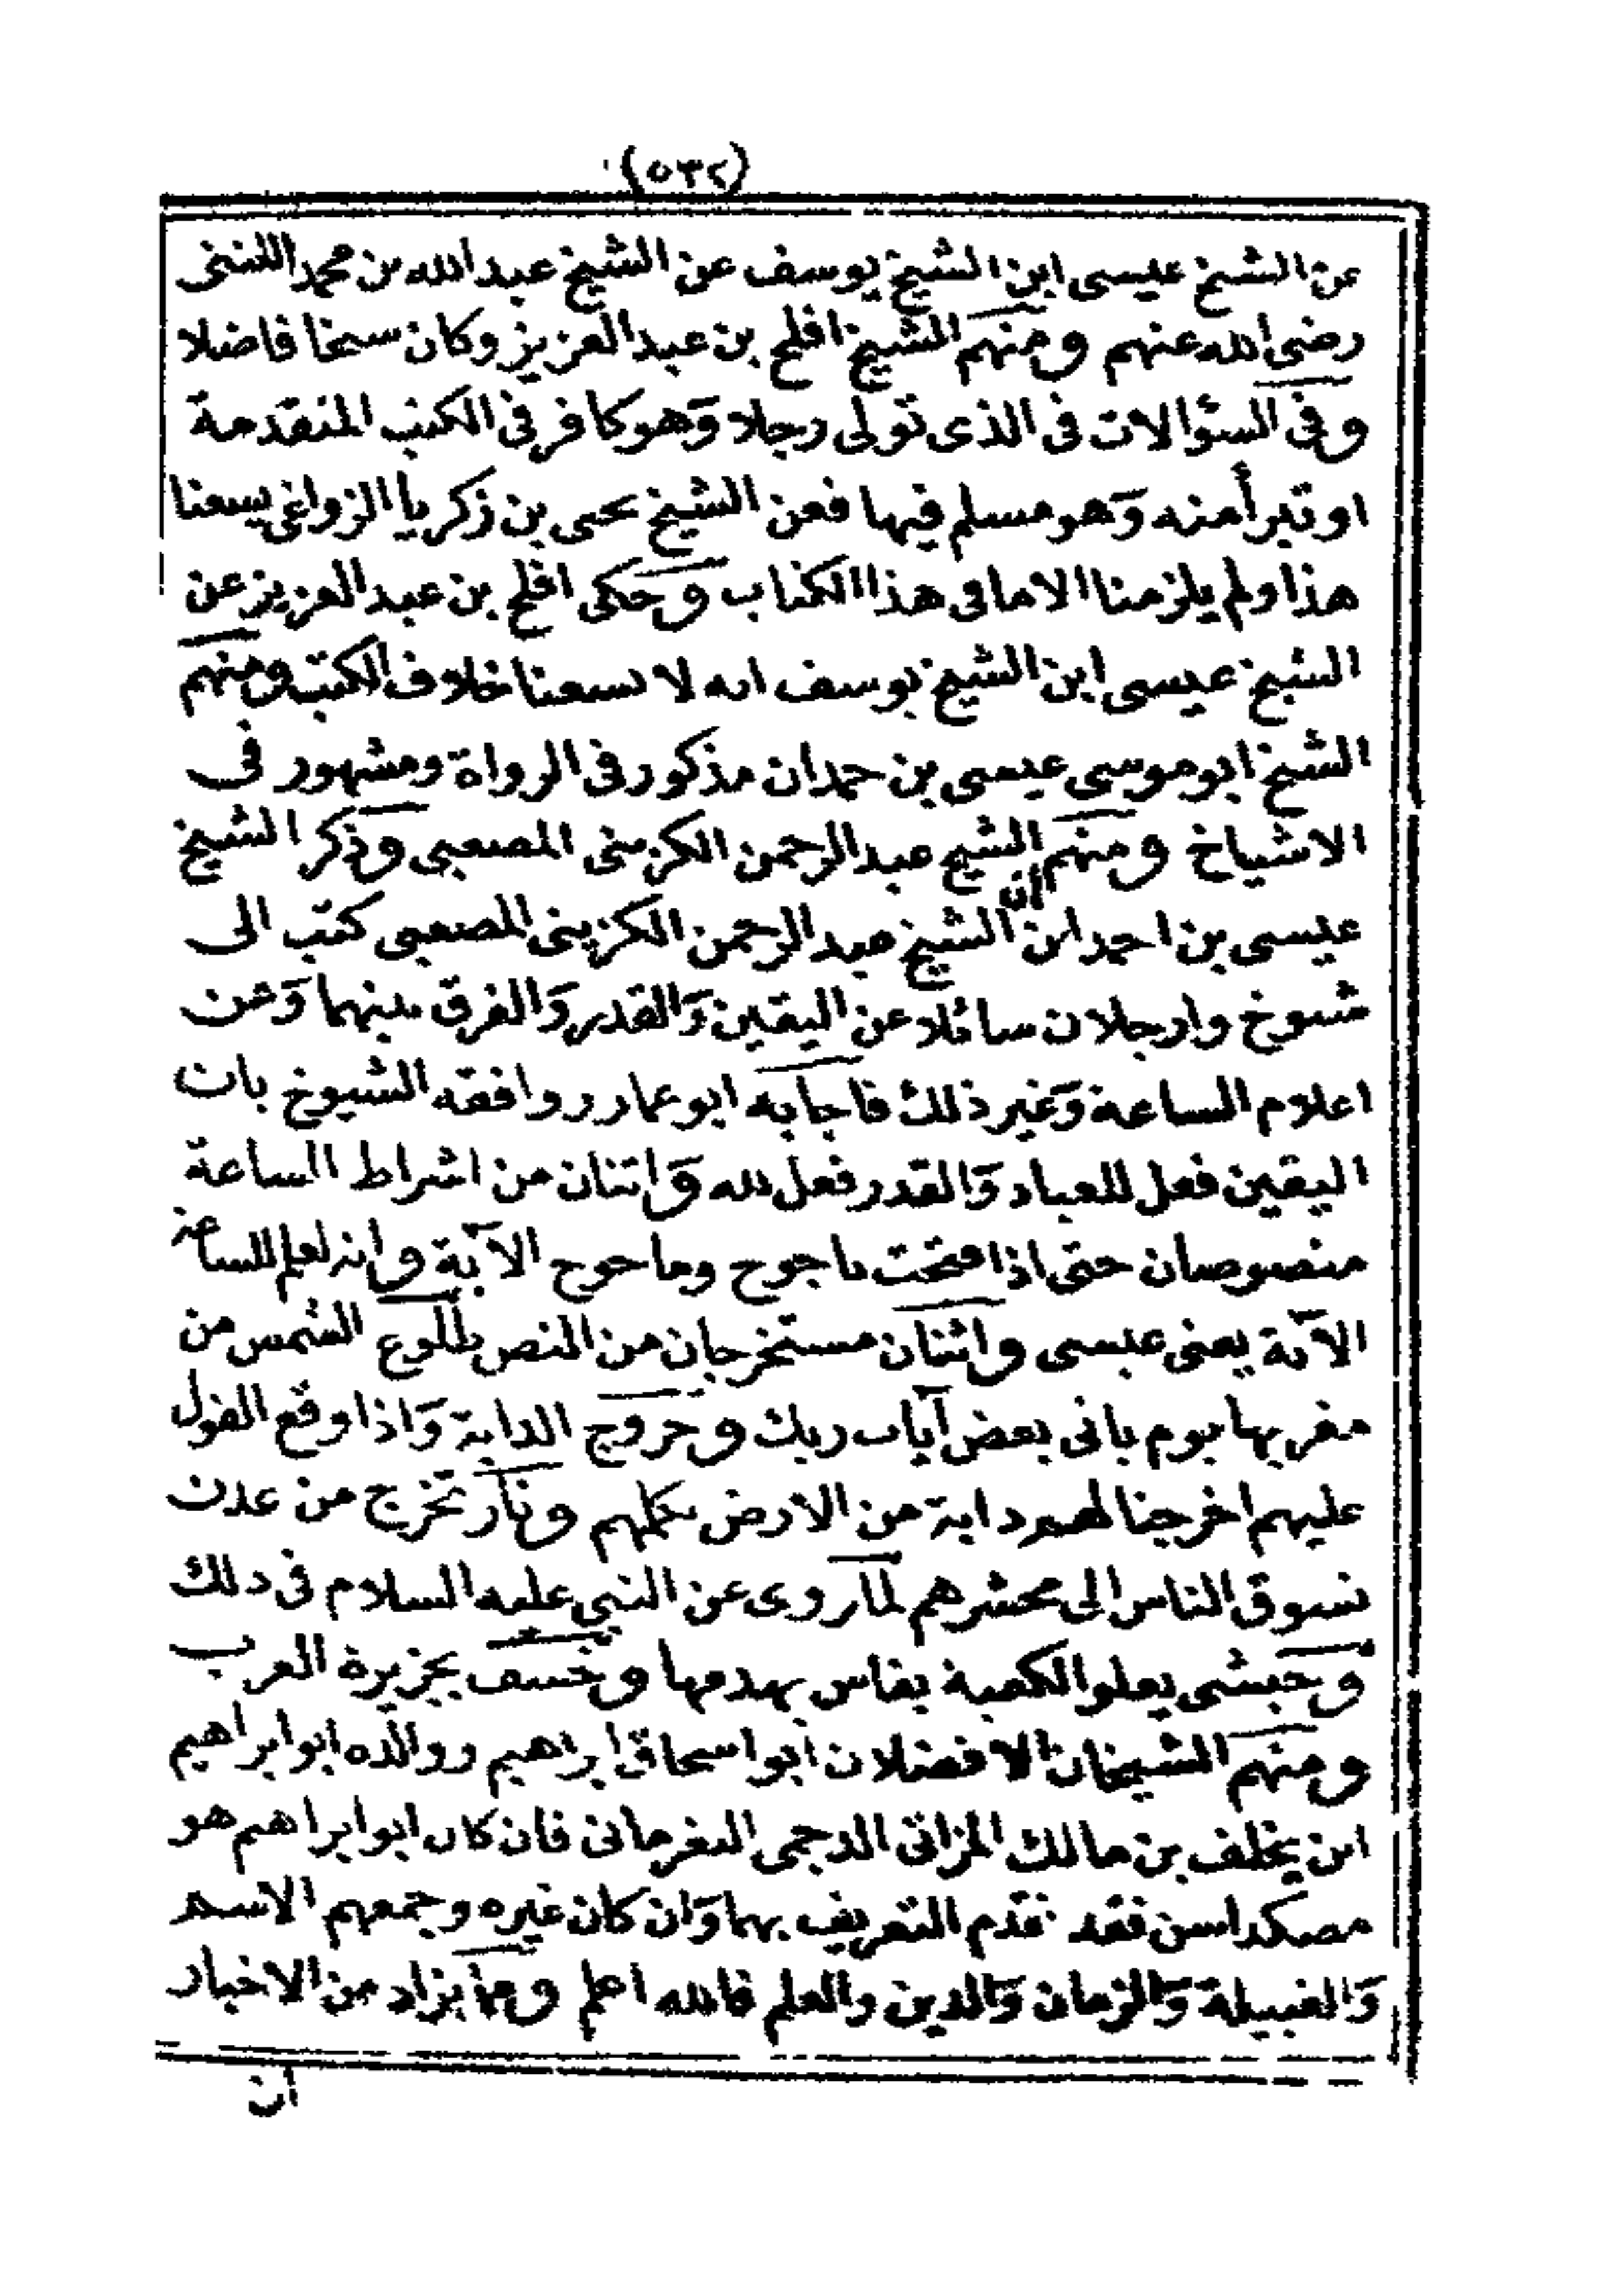 (٥٣٢)
عن الشيخ عيسى ابن الشيخ يوسف عن الشيخ عبد الله بن محمد اللنثى
رضى الله عنهم ومنهم الشيخ افلح بن عبد العزيز وكان سخيا فاضلا
وفى السؤالات فى الذى تولى رجلا وَهو كافر فى الكتب المتقدمة
او تبرأ منه وَهو مسلم فيها فعن الشيخ يحيى بن زكريا الزواغى يسعنا
هذا ولم يلزمنا الا ما فى هذا الكتاب وحكى افلح بن عبد العزيز عن
الشيخ عيسى ابن الشيخ يوسف انه لا يسعنا خلاف الكتب ومنهم
الشيخ ابو موسى عيسى بن حمدان مذكور فى الرواة ومشهور فى
الاشياخ ومنهم الشيخ عبد الرحمن الكزينى المصعبى وذكر الشيخ
عيسى بن احمد ان الشيخ عبد الرحمن الكزينى المصعبى كتب الى
شيوخ وارجلان سائلا عن اليقين وَالقدر وَالفرق بينهما وَعن
اعلام الساعة وَغير ذلك فاجابه ابو عمار ووافقه الشيوخ بان
اليقين فعل للعباد وَالقدر فعل لله وَاثنان من اشراط الساعة
منصوصان حتى اذا فتحت ياجوج وماجوج الآية وانه لعلم للساعة
الآية يعنى عيسى واثنان مستخرجان من النص طلوع الشمس من
مغربها يوم ياتى بعض آيات ربك وخروج الدابة وَاذا وقع القول
عليهم اخرجنا لهم دابة من الارض تكلمهم ونار تخرج من عدن
تسوق الناس الى محشرهم لما روى عن النبى عليه السلام فى ذلك
وحبشى يعلو الكعبة بفاس يهدمها وخسف بجزيرة العرب
ومنهم الشيخان الافضلان ابو اسحاق ابراهيم ووالده ابو ابراهيم
ابن يخلف بن مالك المزاتى الدجمى النفرمانى فان كان ابو ابراهيم هو
مصكداسن فقد تقدم التعريف بهما وَان كان غيره وجمعهم الاسم
وَالقبيلة وَالزمان وَالدين والعلم فالله اعلم ومما يزاد من الاخبار
ان